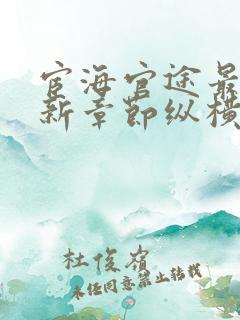 宦海官途最
新章节纵横
杜俊岭
未经同意禁止转载